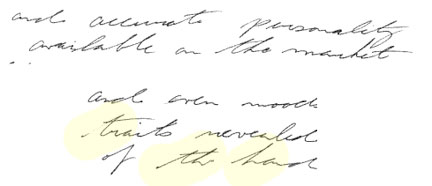 and accurate personality
available on the market
and even moods
traits revealed
of the hand